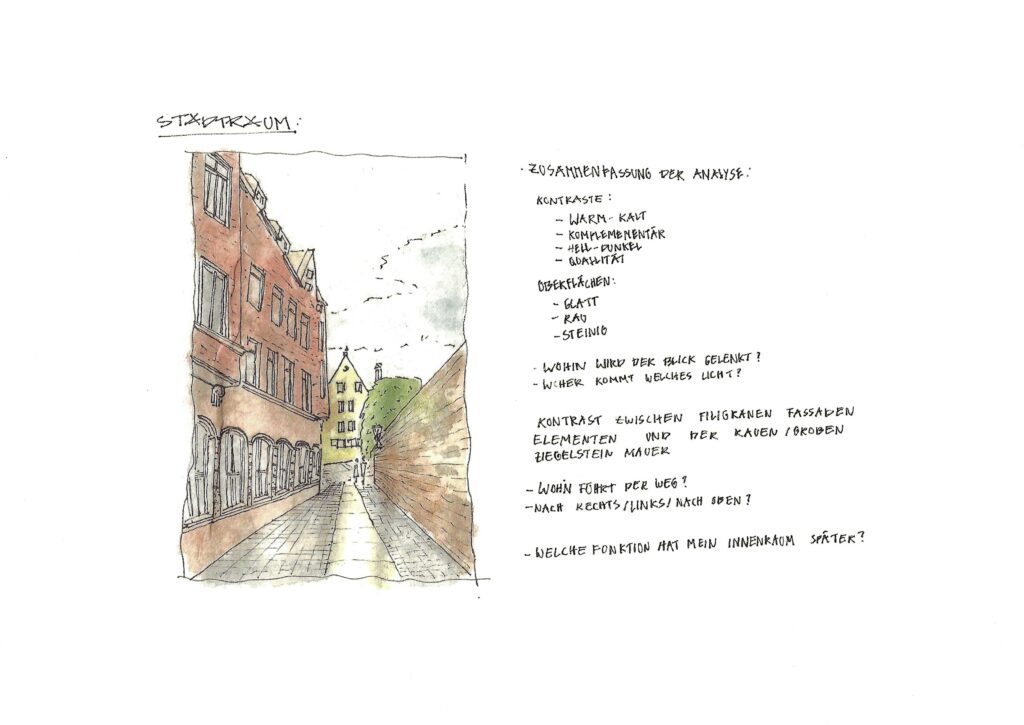 STADTRAUM:
· ZUSAMMENFASSUNG DER ANALYSE:
KONTRASTE:
- WARM - KALT
- KOMPLEMENTÄR
- HELL - DUNKEL
- QUALLITÄT
OBERFLÄCHEN:
- GLATT
- RAU
- STEINIG
- WOHIN WIRD DER BLICK GELENKT?
- WOHER KOMMT WELCHES LICHT?
KONTRAST ZWISCHEN FILIGRANEN FASSADEN
ELEMENTEN UND DER RAUEN/GROBEN
ZIEGELSTEIN MAUER
- WOHIN FÜHRT DER WEG?
- NACH RECHTS/LINKS/NACH OBEN?
- WELCHE FUNKTION HAT MEIN INNENRAUM SPÄTER?